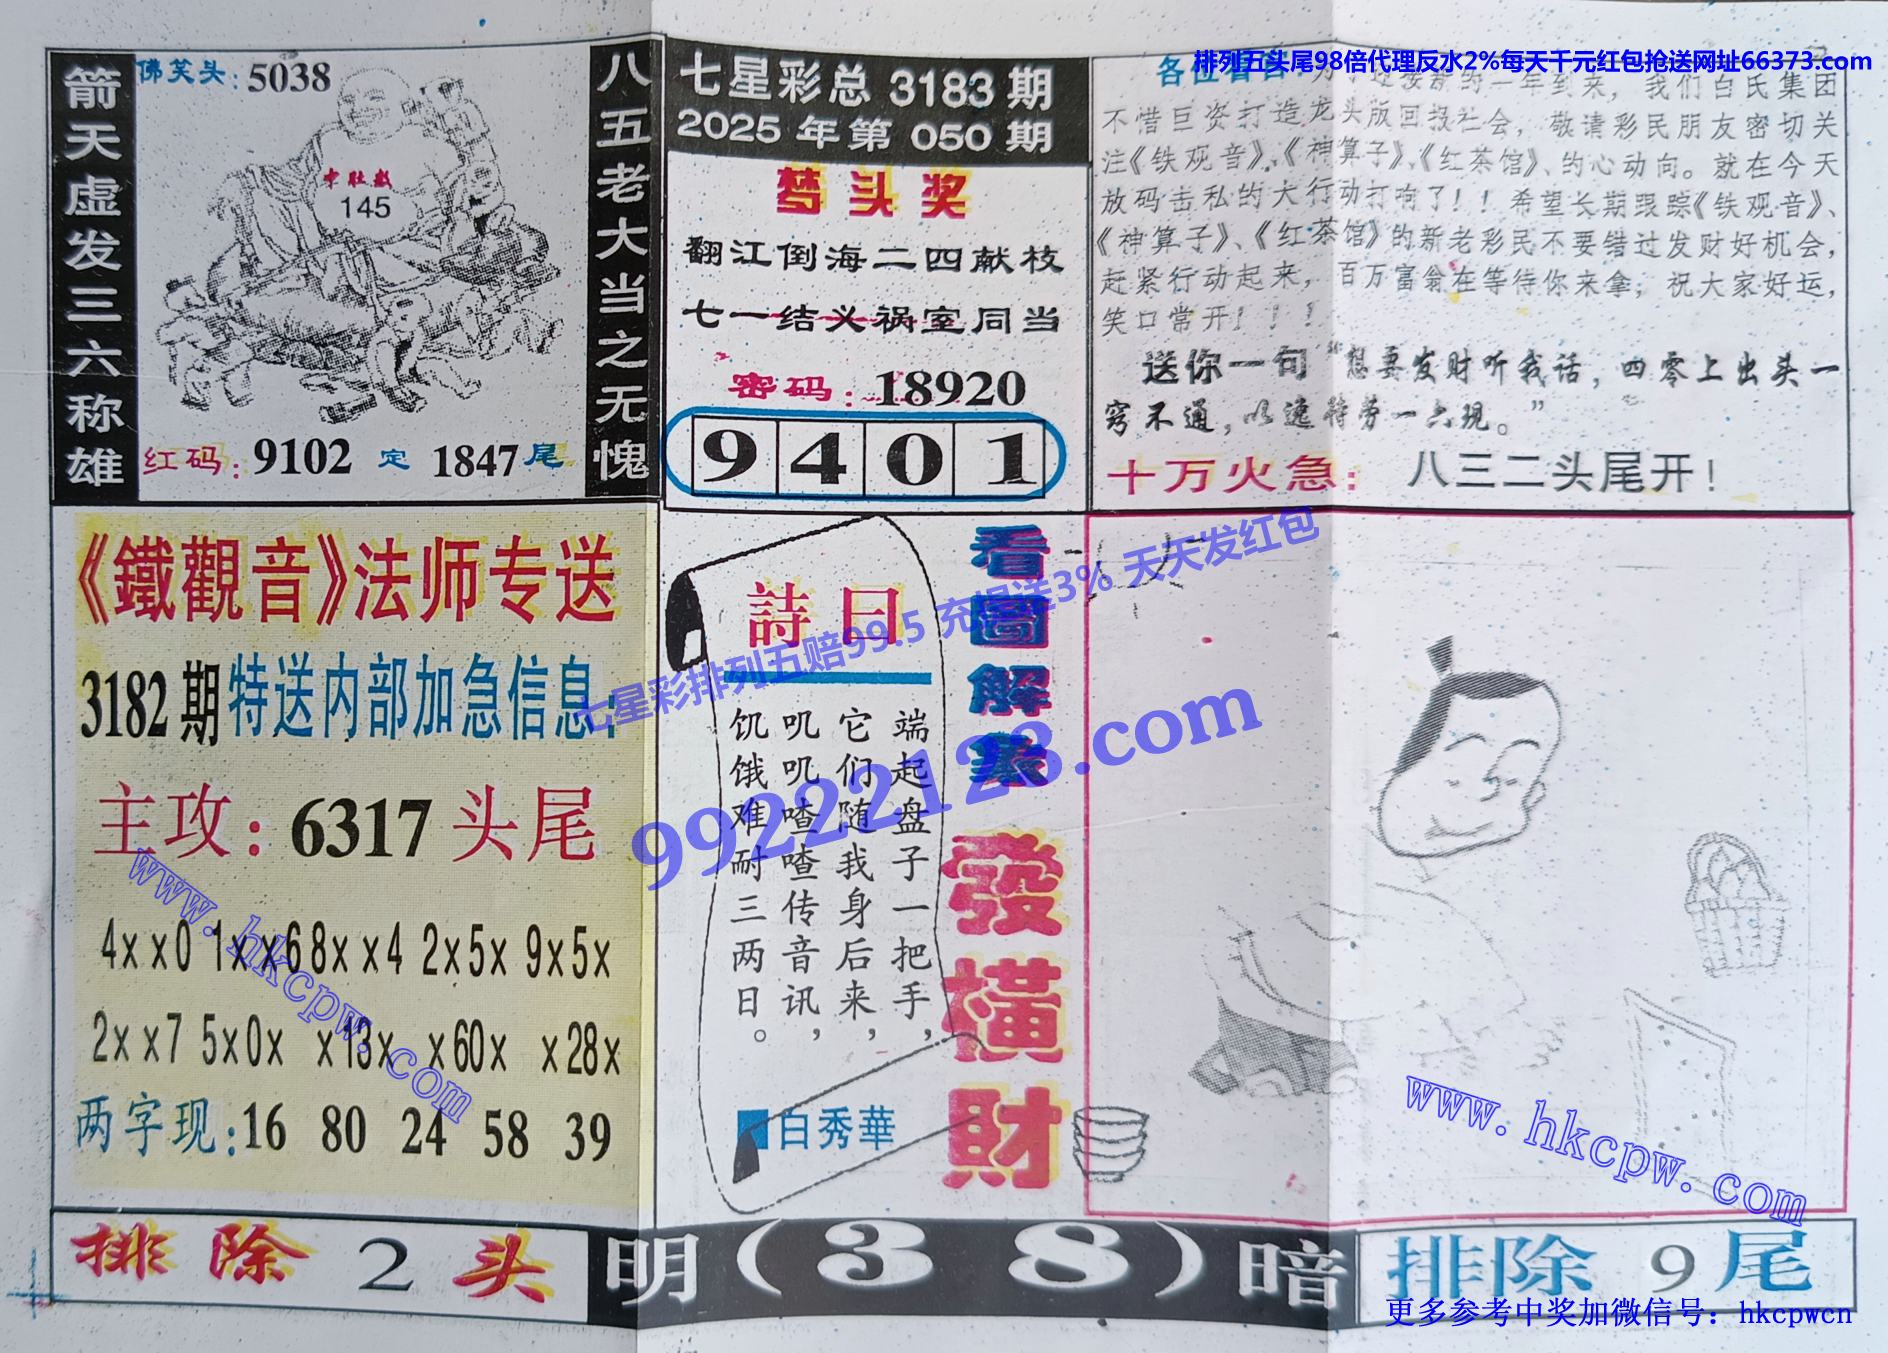 排列五头尾98倍代理反水2%每天千元红包抢送网址66373.com
箭天虚发三六称雄
佛笑头:5038
中肚数
145
红码:9102 定 1847尾
八五老大当之无愧
七星彩总 3183 期
2025 年第 050 期
梦头奖
翻江倒海二四献枝
七一结义祸室同当
密码:18920
9401
各位看官:
的一年到来，我们白氏集团
不惜巨资打造龙头版回报社会，敬请彩民朋友密切关
注《铁观音》、《神算子》、《红茶馆》、的心动向。就在今天
放码击私的大行动打响了！！希望长期跟踪《铁观音》、
《神算子》、《红茶馆》的新老彩民不要错过发财好机会，
赶紧行动起来，百万富翁在等待你来拿；祝大家好运，
笑口常开！！！
送你一句“想要发财听我话，四零上出头一
窍不通，以逸待劳一六现。”
十万火急：八三二头尾开！
《鐵觀音》法师专送
3182期特送内部加急信息:
主攻:6317头尾
4××0 1××6 8××4 2×5× 9×5×
2××7 5×0× ×13× ×60× ×28×
两字现:16 80 24 58 39
詩曰
端起盘子一把手，
它们随我身后来，
叽叽喳喳传音讯，
饥饿难耐三两日。
白秀華
看圖解象
發橫財
七星彩排列五赔99.5 充提送3% 天天发红包
99222128.com
www.hkcpw.com
www.hkcpw.com
排除2头
明(38)暗
排除9尾
更多参考中奖加微信号：hkcpwcn